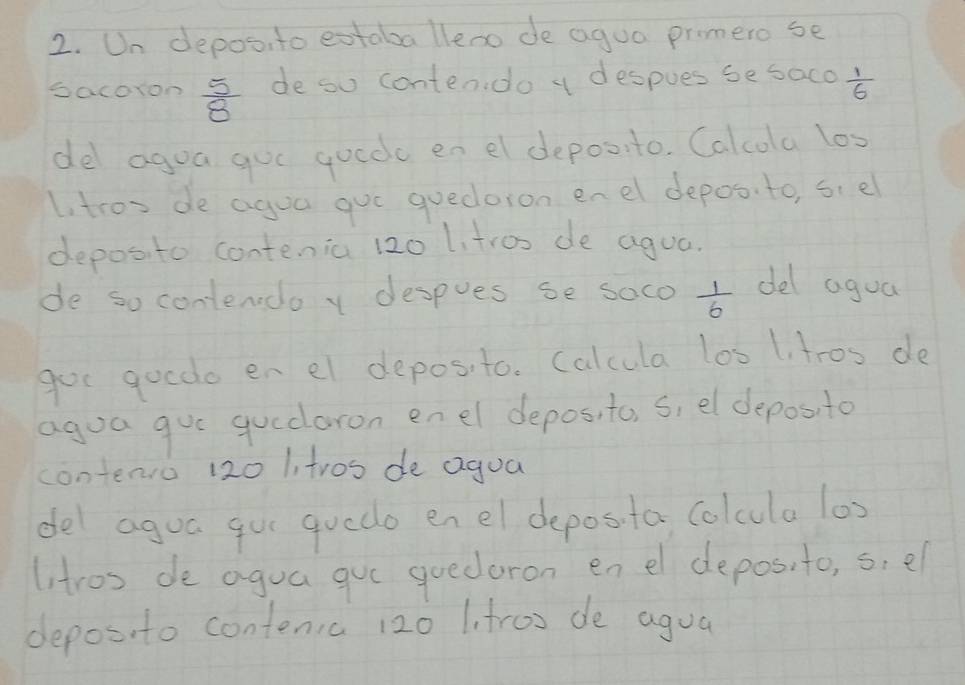 2. Un deposito estaba lleno de agua primero se
sacoron 5/8 de su contenido y despues se saco 1/6
del agua que quedo en el deposito. Calcula los
litros de agua que quedaron en el deposito, si el
deposito contenia 120 litros de agua.
de su contenido y despues se saco 1/6 del agua
que quedo en el deposito. Calcula los litros de
agua que quedaron en el deposito, si el deposito
contenia 120 litros de agua
del agua que quedo en el deposito, Calcula los
litros de agua que quedaron en el deposito, si el
deposito contenia 120 litros de agua